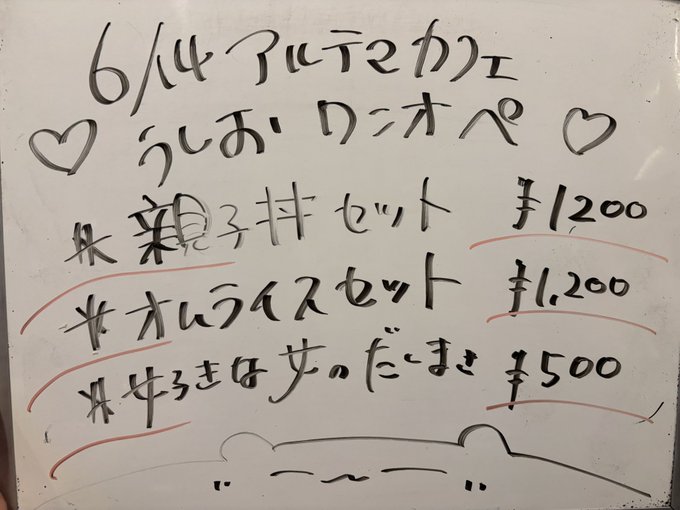 6/14 アルテマカフェ
♡ うしお ワンオペ ♡
* 親子丼セット ¥1,200
* オムライスセット ¥1,200
* 好きな女のだしまき ¥500